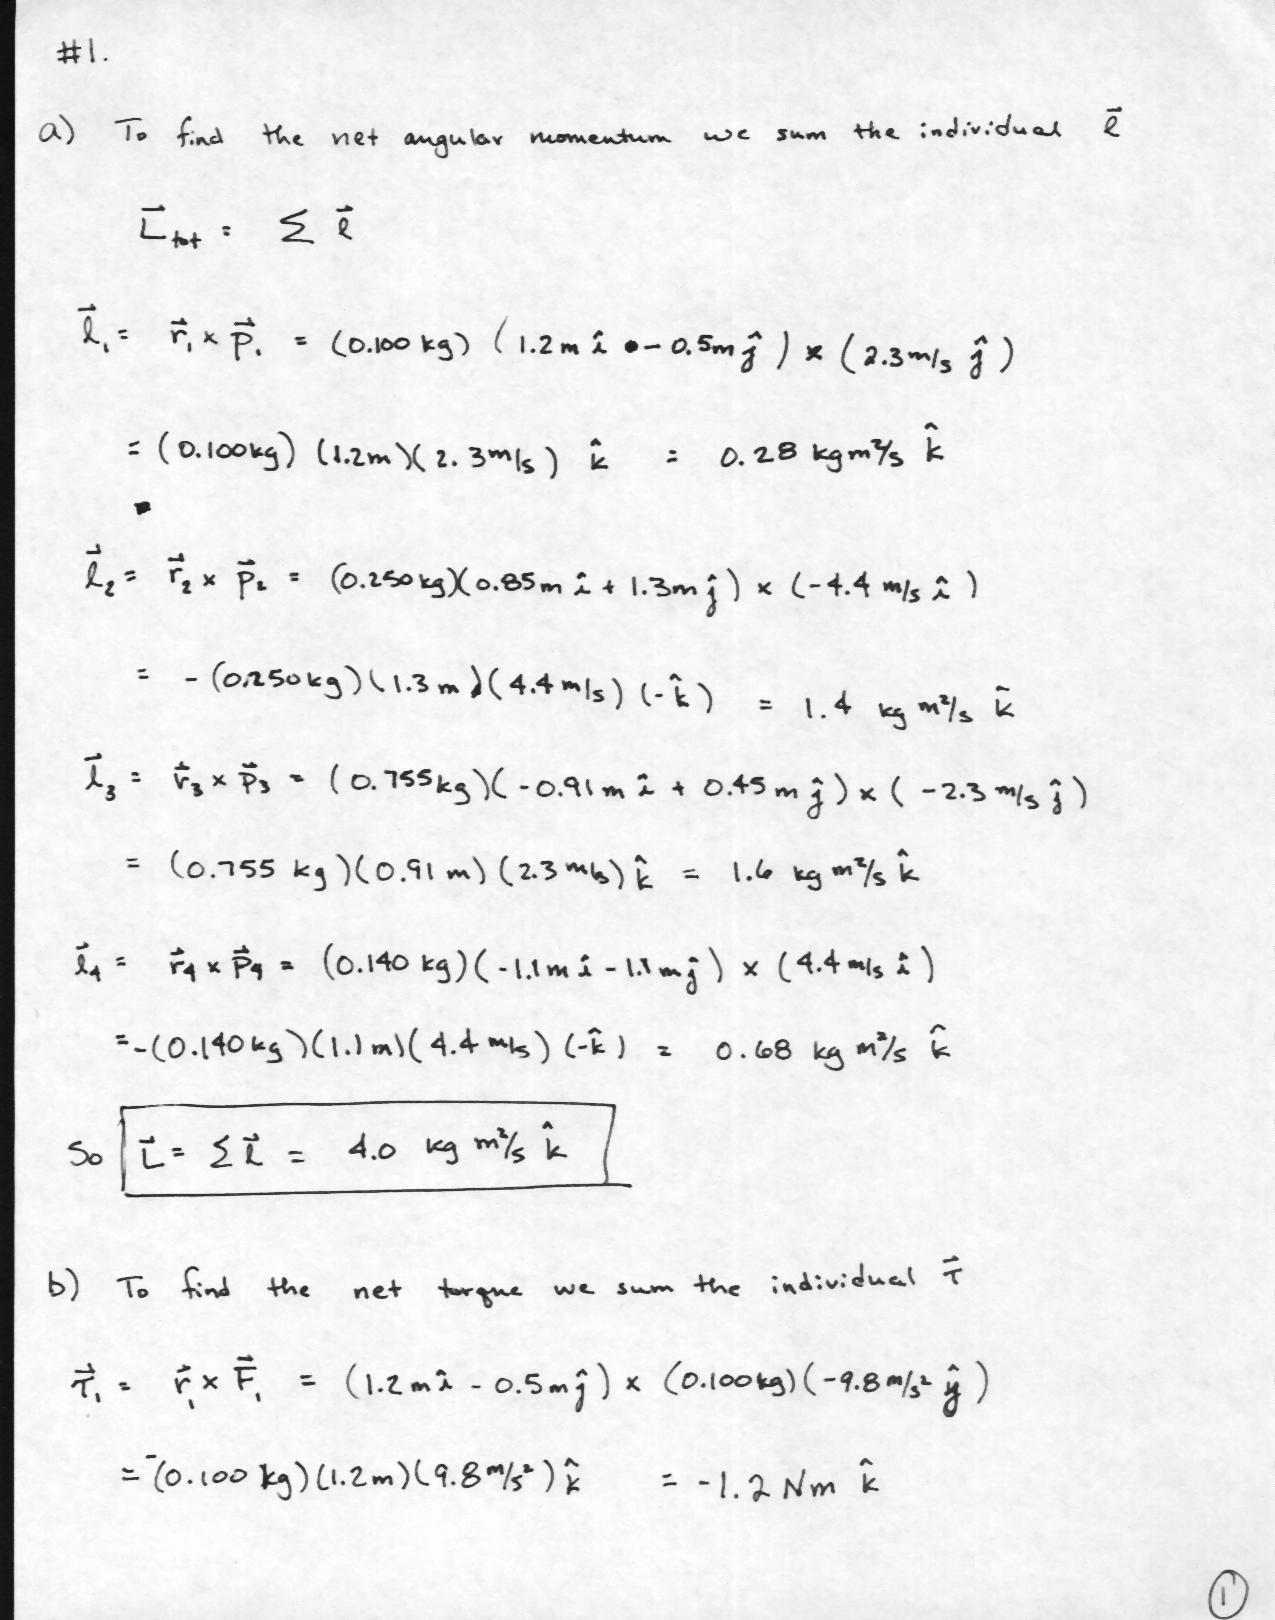 #1.
a) To find the net angular momentum we sum the individual ℓ⃗
L⃗tot = Σ ℓ⃗
ℓ⃗₁ = r⃗₁ × p⃗₁ = (0.100 kg) (1.2 m î - 0.5 m ĵ) × (2.3 m/s ĵ)
= (0.100 kg) (1.2 m)(2.3 m/s) k̂ = 0.28 kg m²/s k̂
ℓ⃗₂ = r⃗₂ × p⃗₂ = (0.250 kg)(0.85 m î + 1.3 m ĵ) × (-4.4 m/s î)
= - (0.250 kg)(1.3 m)(4.4 m/s) (-k̂) = 1.4 kg m²/s k̂
ℓ⃗₃ = r⃗₃ × p⃗₃ = (0.755 kg)(-0.91 m î + 0.45 m ĵ) × (-2.3 m/s ĵ)
= (0.755 kg)(0.91 m) (2.3 m/s) k̂ = 1.6 kg m²/s k̂
ℓ⃗₄ = r⃗₄ × p⃗₄ = (0.140 kg)(-1.1 m î - 1.1 m ĵ) × (4.4 m/s î)
= -(0.140 kg)(1.1 m)(4.4 m/s) (-k̂) = 0.68 kg m²/s k̂
So L⃗ = Σ ℓ⃗ = 4.0 kg m²/s k̂
b) To find the net torque we sum the individual τ⃗
τ⃗₁ = r⃗₁ × F⃗₁ = (1.2 m î - 0.5 m ĵ) × (0.100 kg)(-9.8 m/s² ĵ)
= -(0.100 kg)(1.2 m)(9.8 m/s²) k̂ = -1.2 Nm k̂
1